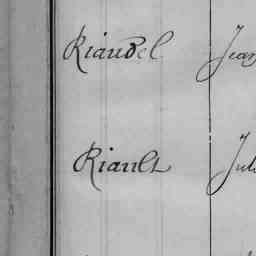 Riaudel Jean
Riault Jul